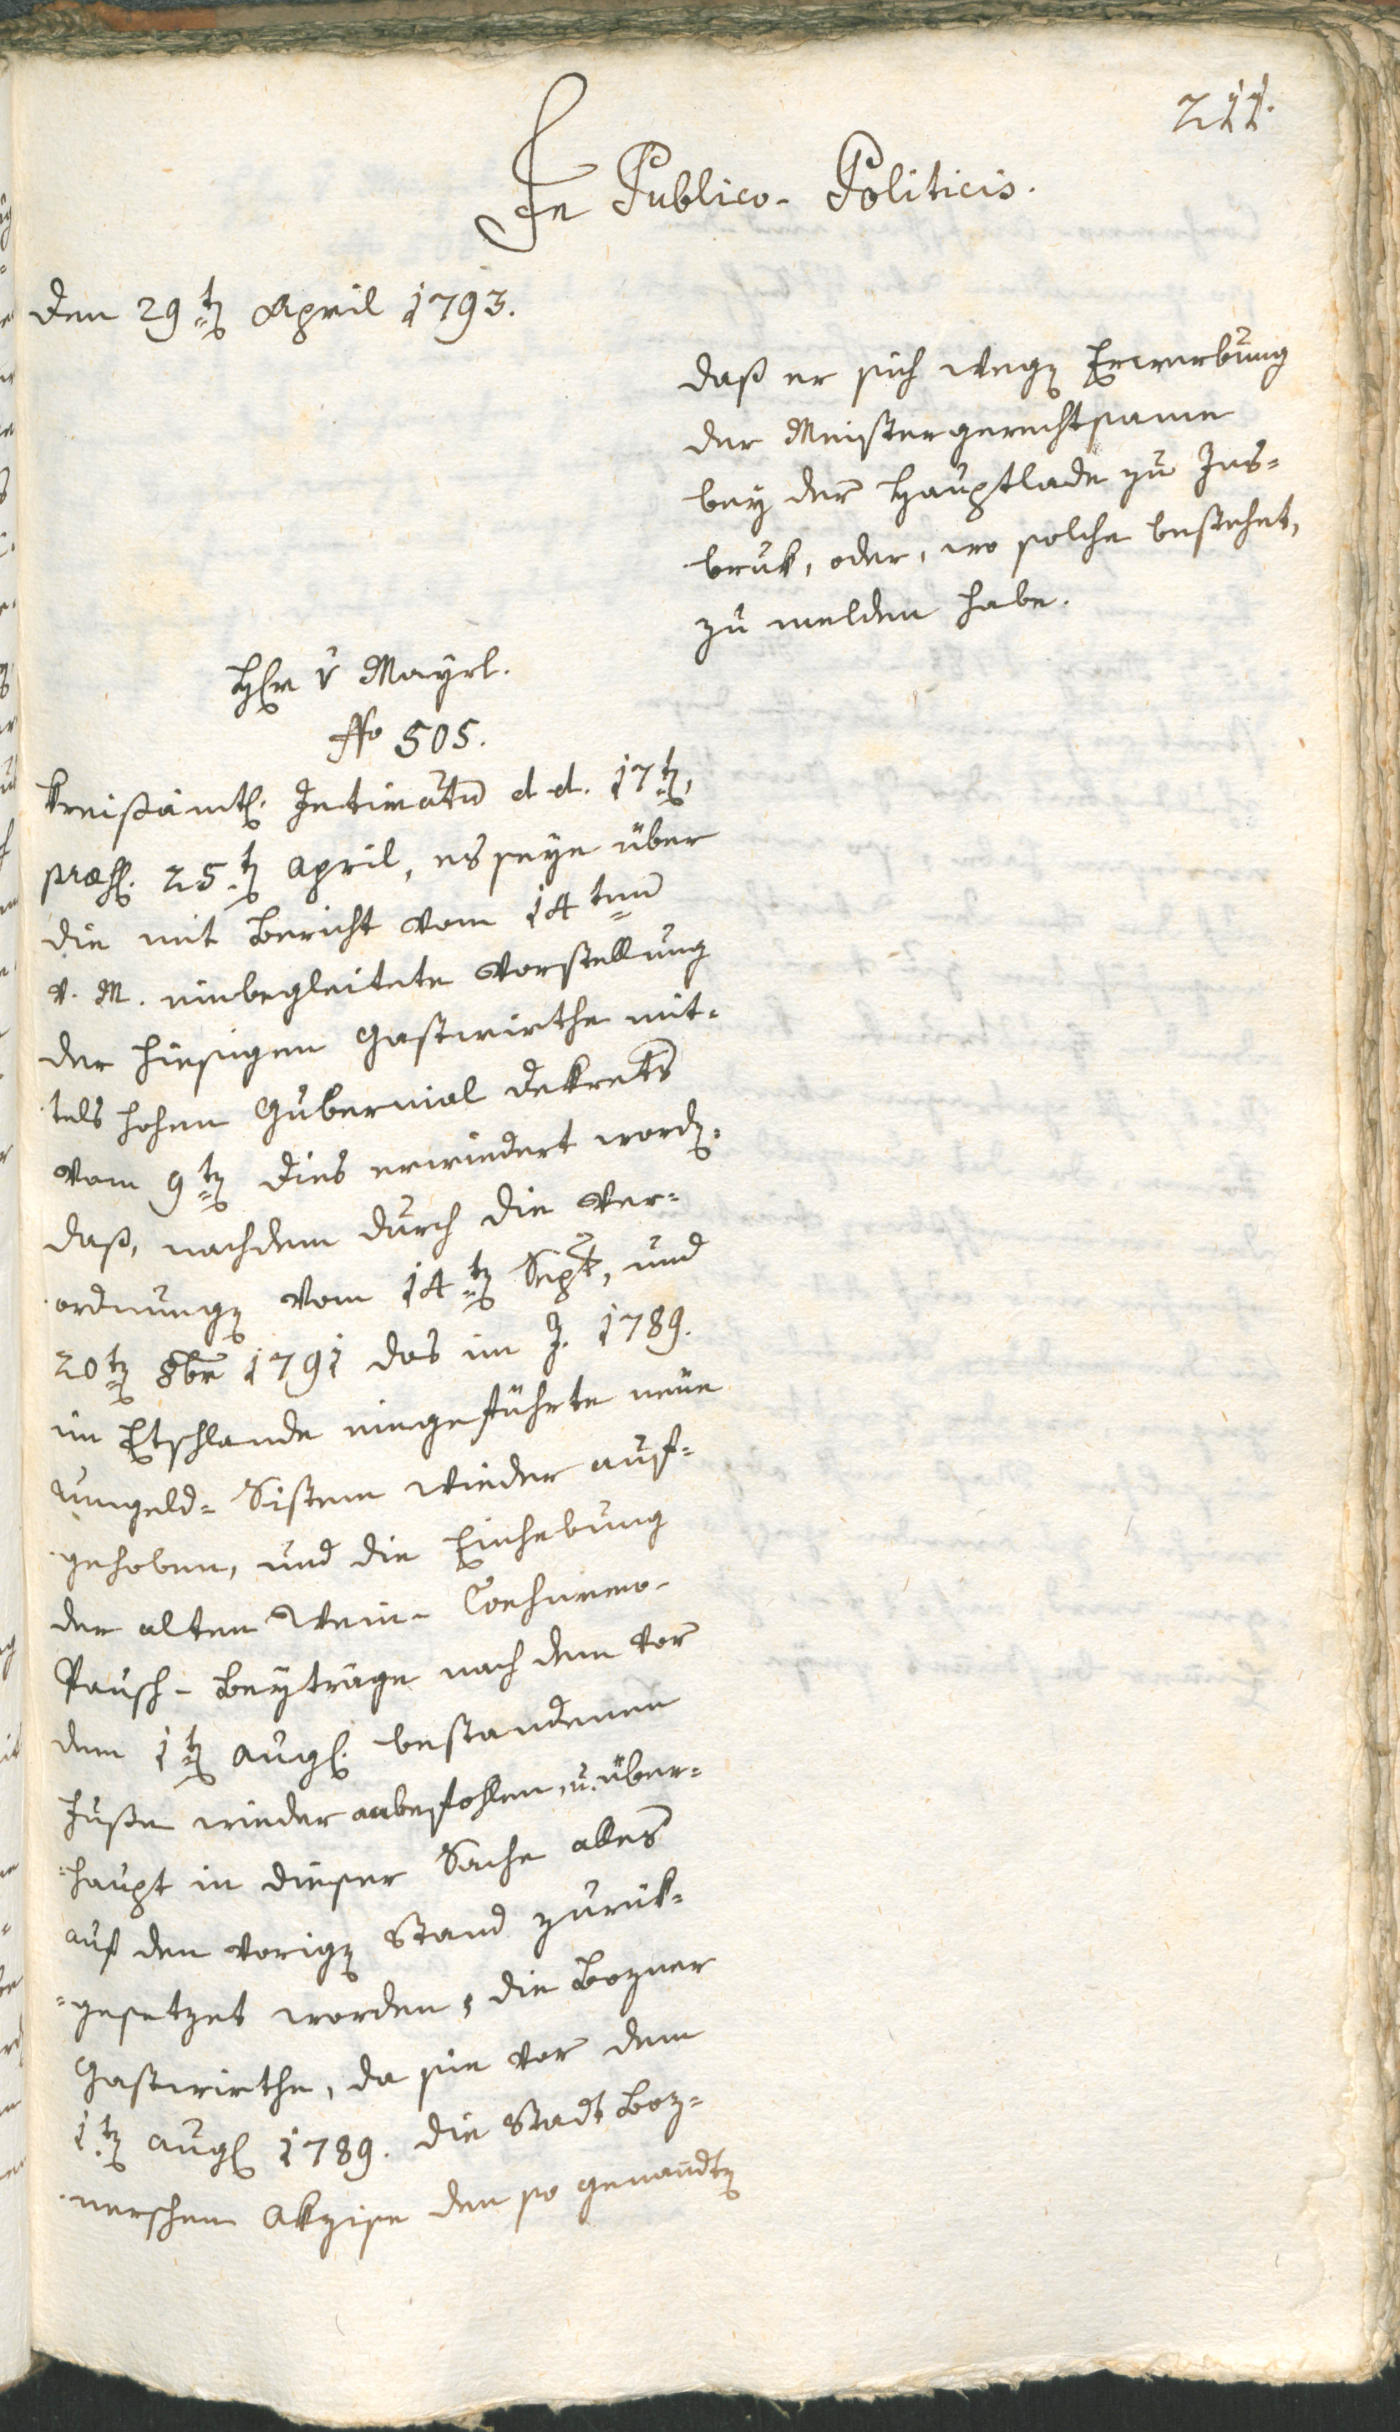 211.
In Publico-Politicis.
den 29tn April 1793.
daß er sich wegn Erwerbung
der Meistergerechtsame
bey der Hauptlade zu Ins=
bruk, oder, wo solche bestehet,
zu melden habe.
H. v Mayrl.
No 505.
Kreißämtl. Intimatum d. d. 17tn,
præs. 25tn April, es seye über
die mit Bericht vom 14ten
v. M. einbegleitete Vorstellung
der hiesigen Gastwirthe mit=
tels hohen Gubernial Dekrets
vom 9tn dies erwiedert wordn.
daß, nachdem durch die Ver=
ordnungn vom 14tn Sept, und
20tn 8br 1791 das im J. 1789.
im Etschlande eingeführte neüe
Umgeld=Sistem wieder auf=
gehoben, und die Einhebung
der alten Wein-Consumo-
Pausch-Beyträge nach dem vor
dem 1tn Aug. bestandenen
Fuße wieder anbefohlen, u. über=
=haupt in dieser Sache alles
auf den vorign Stand zurük=
=gesetzet worden, die Bozner
Gastwirthe, da sie vor dem
1tn Aug 1789. die Stadt Boz=
nerschem Akzise den so genandtn